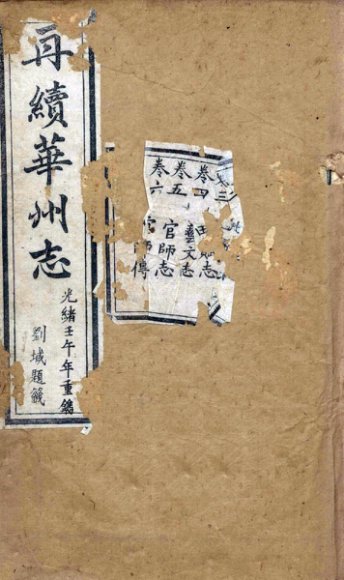 再續華州志
光緒壬午年重鐫
劉域題籤
卷三
卷四 志
卷五 藝文志
卷六 官師志
官師傳